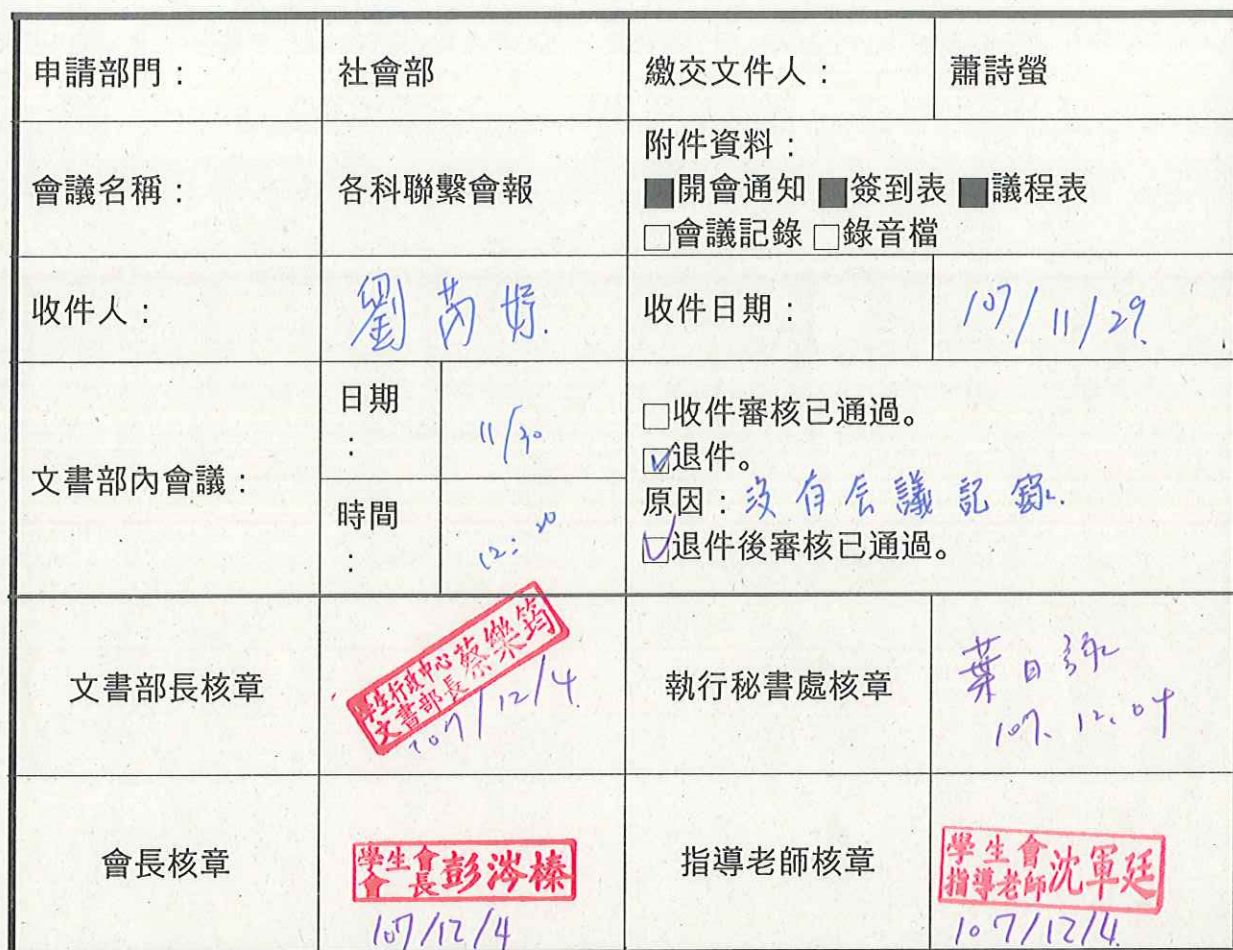 申請部門：
社會部
繳交文件人：
蕭詩螢
會議名稱：
各科聯繫會報
附件資料：
■開會通知 ■簽到表 ■議程表
□會議記錄 □錄音檔
收件人：
劉芮妤
收件日期：
107/11/29
文書部內會議：
日期：
11/30
時間：
12:20
□收件審核已通過。
☑退件。
原因：沒有会議記錄
☑退件後審核已通過。
文書部長核章
學生行政中心
文書部長
蔡樂筠
107/12/4
執行秘書處核章
葉日
107.12.04
會長核章
學生會
會長
彭涔榛
107/12/4
指導老師核章
學生會
指導老師
沈軍廷
107/12/4